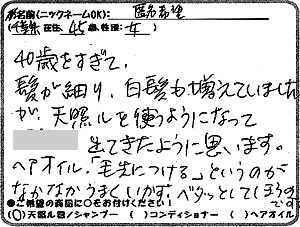 お名前(ニックネームOK): 匿名希望
(千葉県 在住, 45 歳, 性別: 女 )
40歳をすぎて、
髪が細り、白髪も増えていました
が、天照ルを使うようになって
生えてきたように思います。
ヘアオイル、「毛先につける」というのが
なかなかうまくいかず、ベタッとしてしまう
です
●ご希望の商品に○をお付けください!
(○)天照ル 器ノシャンプー ( )コンディショナー ( )ヘアオイル